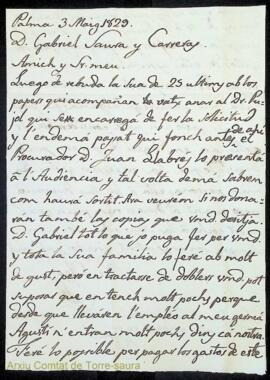 Palma 3 Maig 1829.
D. Gabriel Saura y Carreras.
Amich y Sr. meu.
Luego de rebuda la Sua de 25 ultim ab los
papers qui acompañan vatx anar al Dr. Pu-
jol qui se encarregá de fer la solicitud
y l'endemá pagat qui fonch antes de aqui el
Procurador D. Juan Llabrés lo presentá
á l'Audiencia y tal volta demá sabrem
com haurá sortit. Ara veurem si nos dona-
rán també las copias que vmd. desitja.
D. Gabriel tot lo que jo puga fer per vmd.
y tota la Sua familia lo feré ab molt
de gust, pero en tractarse de doblers vmd. pot
suposar que en tench molt pochs perque
desde que llevaren l'empleo al meu germá
Agustí n'entran molt pochs dins ca nostra.
Feré lo posible per pagar los gastos de este
Arxiu Comtat de Torre-saura